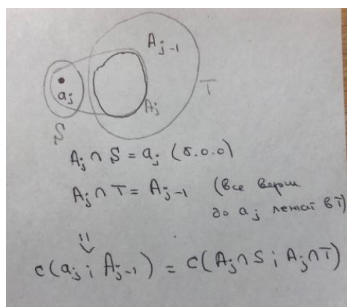 A_{j-1}
a_j
T
A_j
S
A_j ∩ S = a_j (б.о.о)
A_j ∩ T = A_{j-1} (все верш
до a_j лежат в T)
⇓
c(a_j ; A_{j-1}) = c(A_j ∩ S ; A_j ∩ T)